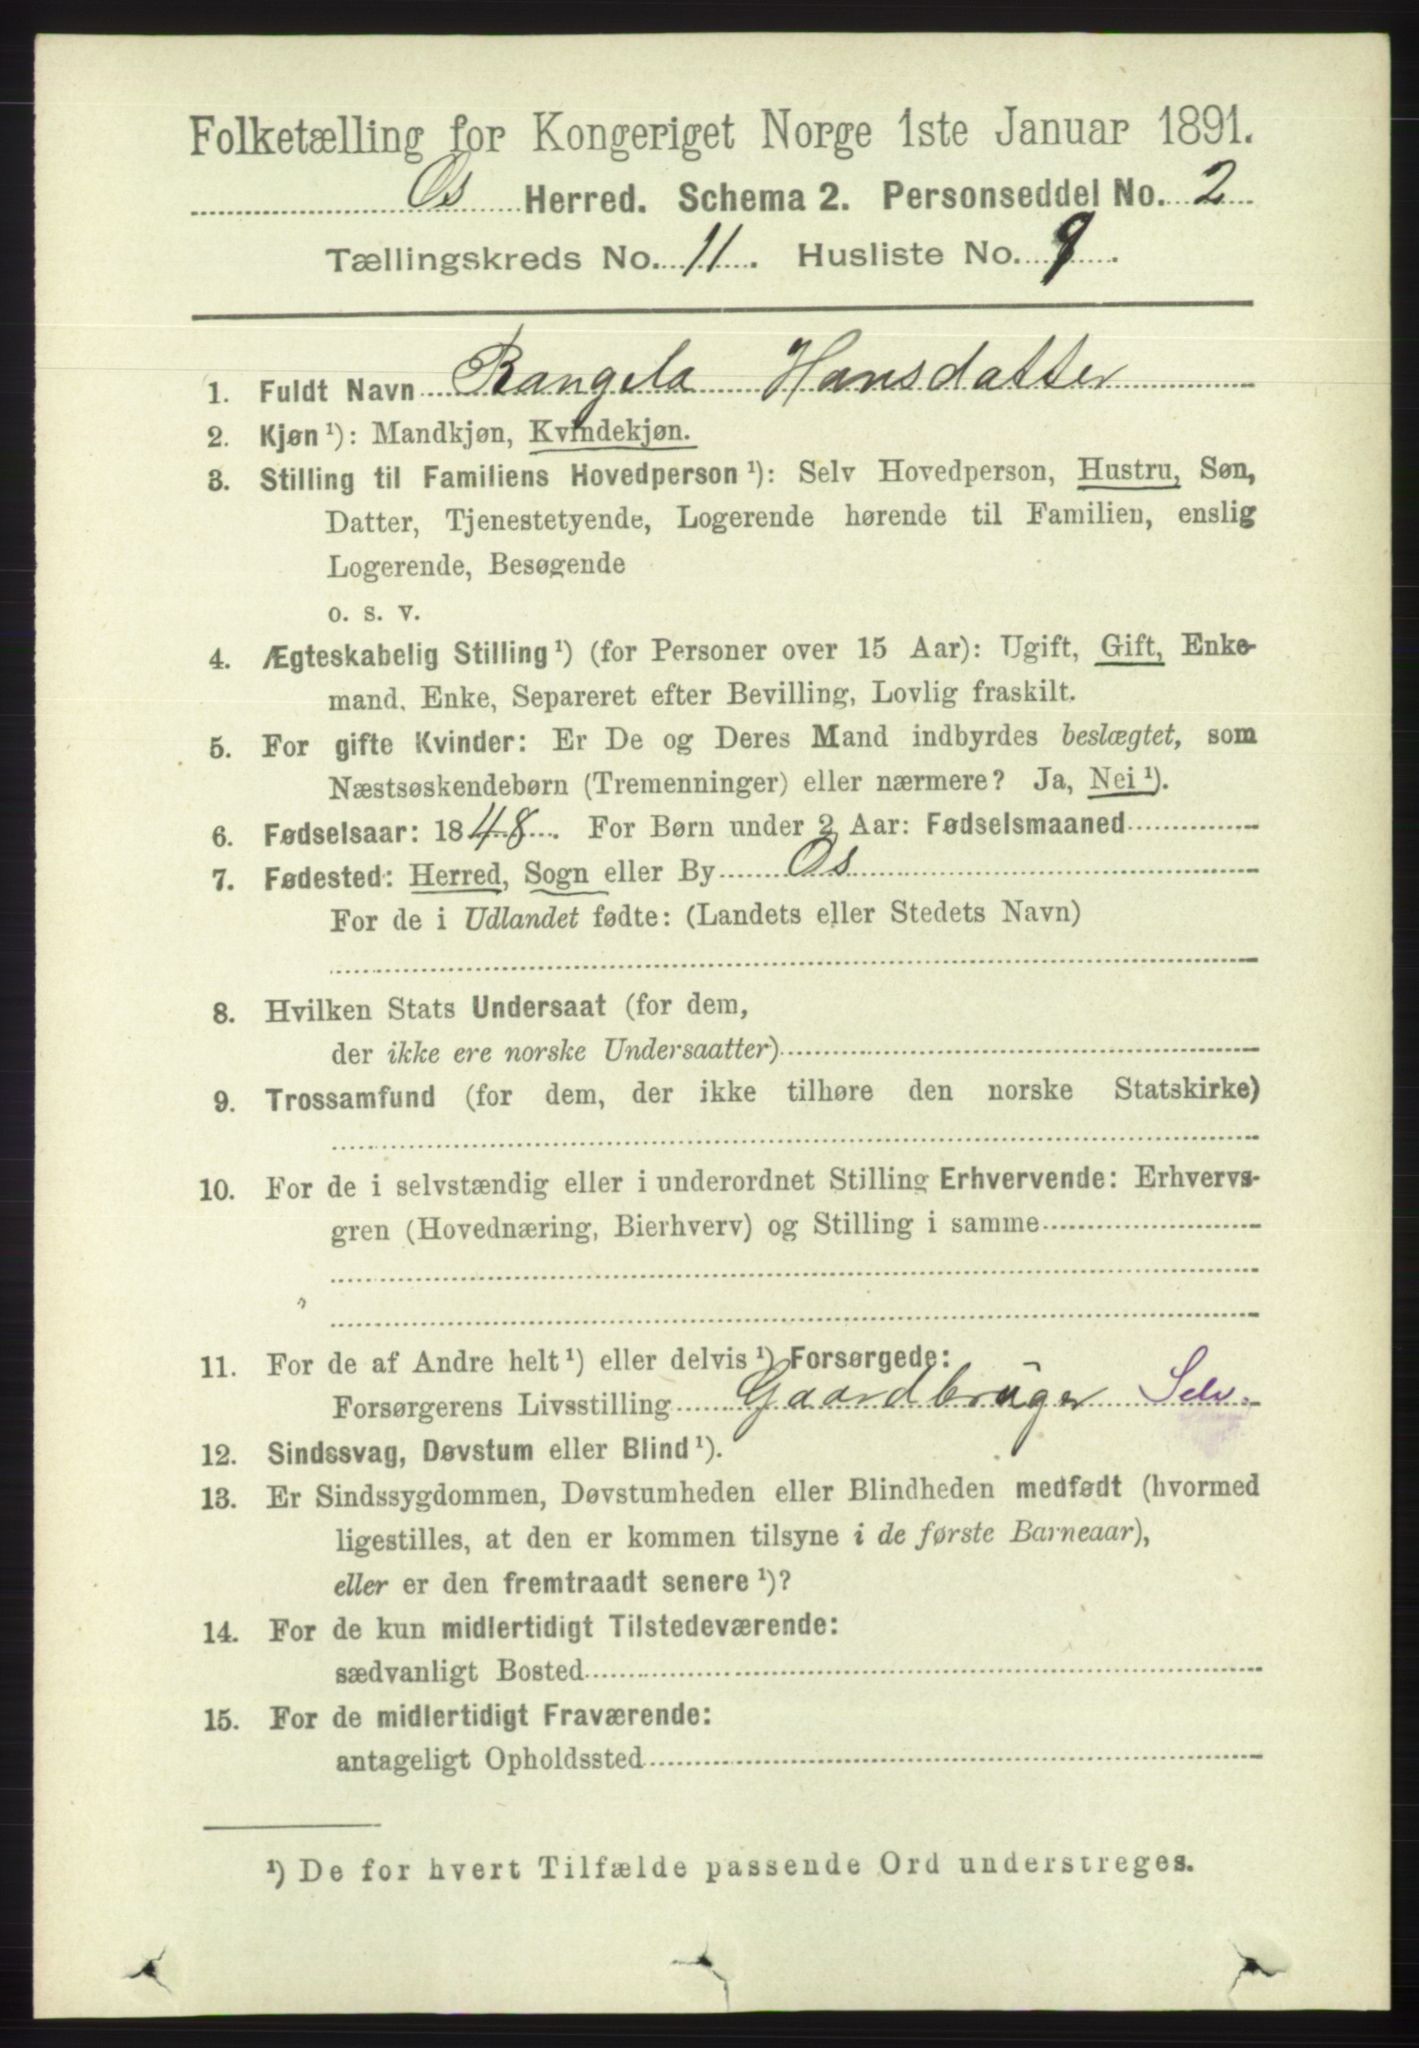 Folketælling for Kongeriget Norge 1ste Januar 1891.
Os Herred. Schema 2. Personseddel No. 2
Tællingskreds No. 11. Husliste No. 9.
1. Fuldt Navn Rangela Hansdatter
2. Kjøn ¹): Mandkjøn, Kvindekjøn.
3. Stilling til Familiens Hovedperson ¹): Selv Hovedperson, Hustru, Søn,
Datter, Tjenestetyende, Logerende hørende til Familien, enslig
Logerende, Besøgende
o. s. v.
4. Ægteskabelig Stilling ¹) (for Personer over 15 Aar): Ugift, Gift, Enke-
mand, Enke, Separeret efter Bevilling, Lovlig fraskilt.
5. For gifte Kvinder: Er De og Deres Mand indbyrdes beslægtet, som
Næstsøskendebørn (Tremenninger) eller nærmere? Ja, Nei ¹).
6. Fødselsaar: 1848. For Børn under 2 Aar: Fødselsmaaned
7. Fødested: Herred, Sogn eller By Os
For de i Udlandet fødte: (Landets eller Stedets Navn)
8. Hvilken Stats Undersaat (for dem,
der ikke ere norske Undersaatter)
9. Trossamfund (for dem, der ikke tilhøre den norske Statskirke)
10. For de i selvstændig eller i underordnet Stilling Erhvervende: Erhvervs-
gren (Hovednæring, Bierhverv) og Stilling i samme
11. For de af Andre helt ¹) eller delvis ¹) Forsørgede:
Forsørgerens Livsstilling Gaardbrüger Selv.
12. Sindssvag, Døvstum eller Blind ¹).
13. Er Sindssygdommen, Døvstumheden eller Blindheden medfødt (hvormed
ligestilles, at den er kommen tilsyne i de første Barneaar),
eller er den fremtraadt senere ¹)?
14. For de kun midlertidigt Tilstedeværende:
sædvanligt Bosted
15. For de midlertidigt Fraværende:
antageligt Opholdssted
¹) De for hvert Tilfælde passende Ord understreges.